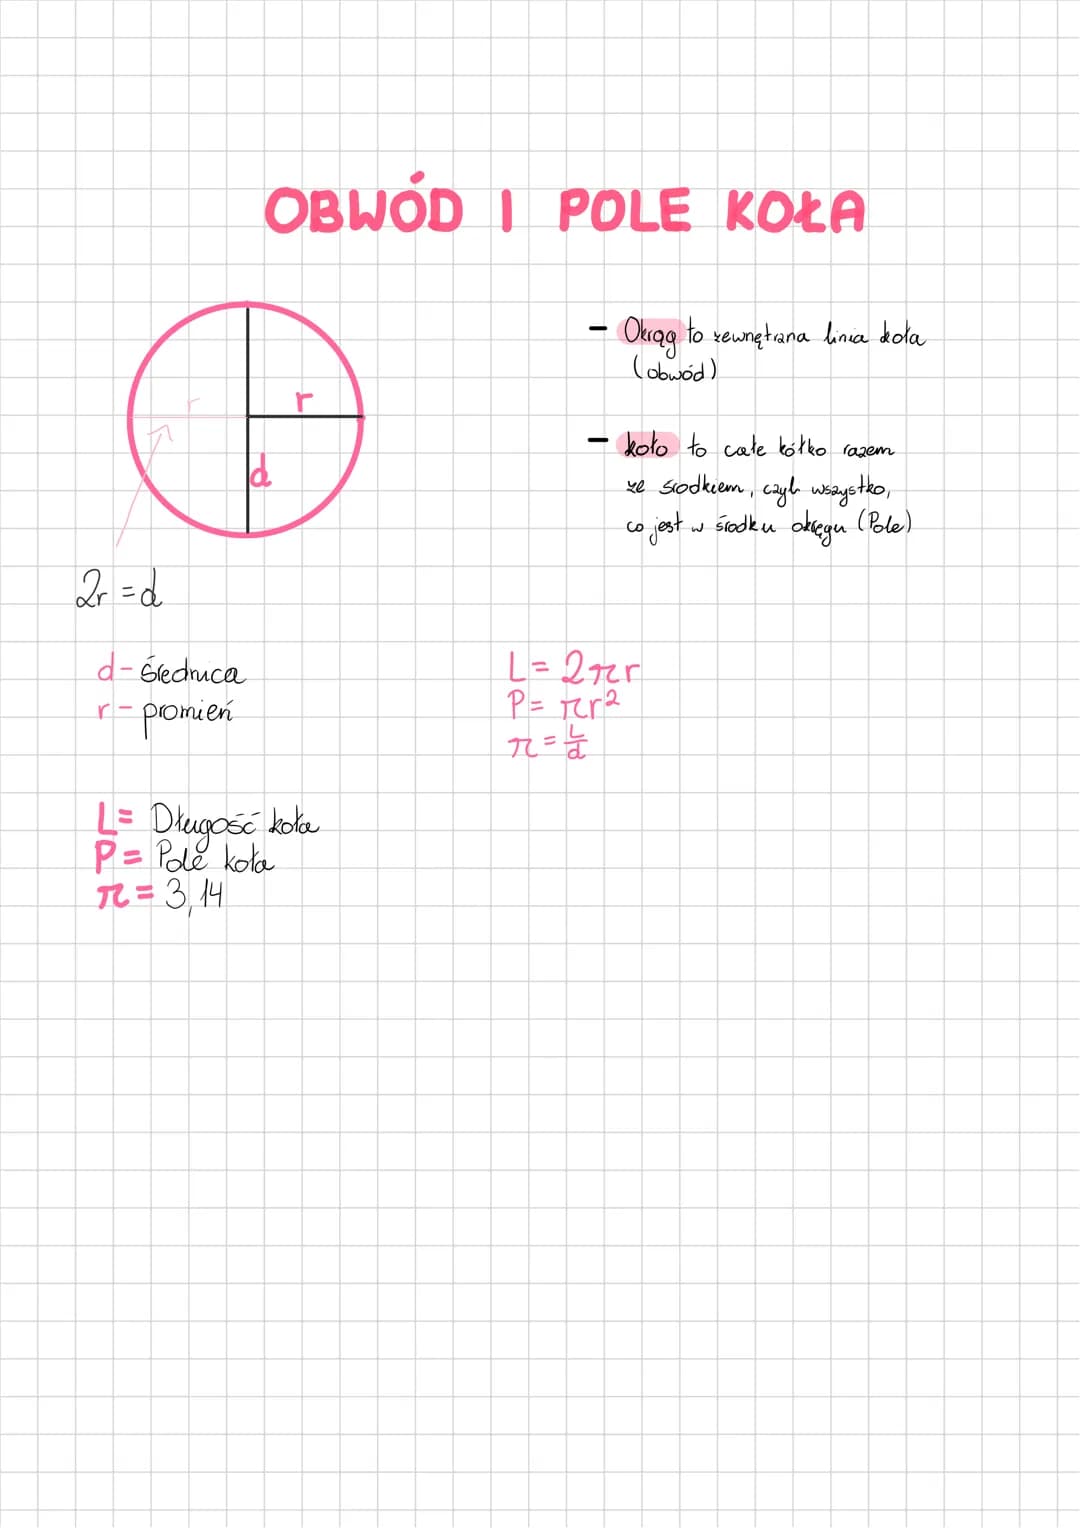 OBWÓD I POLE KOŁA
r
r
d
2r = d
d - średnica
r - promień
L = Długość koła
P = Pole koła
π = 3,14
- Okrąg to zewnętrzna linia koła
(obwód)
- koło to całe kółko razem
ze środkiem, czyli wszystko,
co jest w środku okręgu (Pole)
L = 2πr
P = πr²
π = L/d